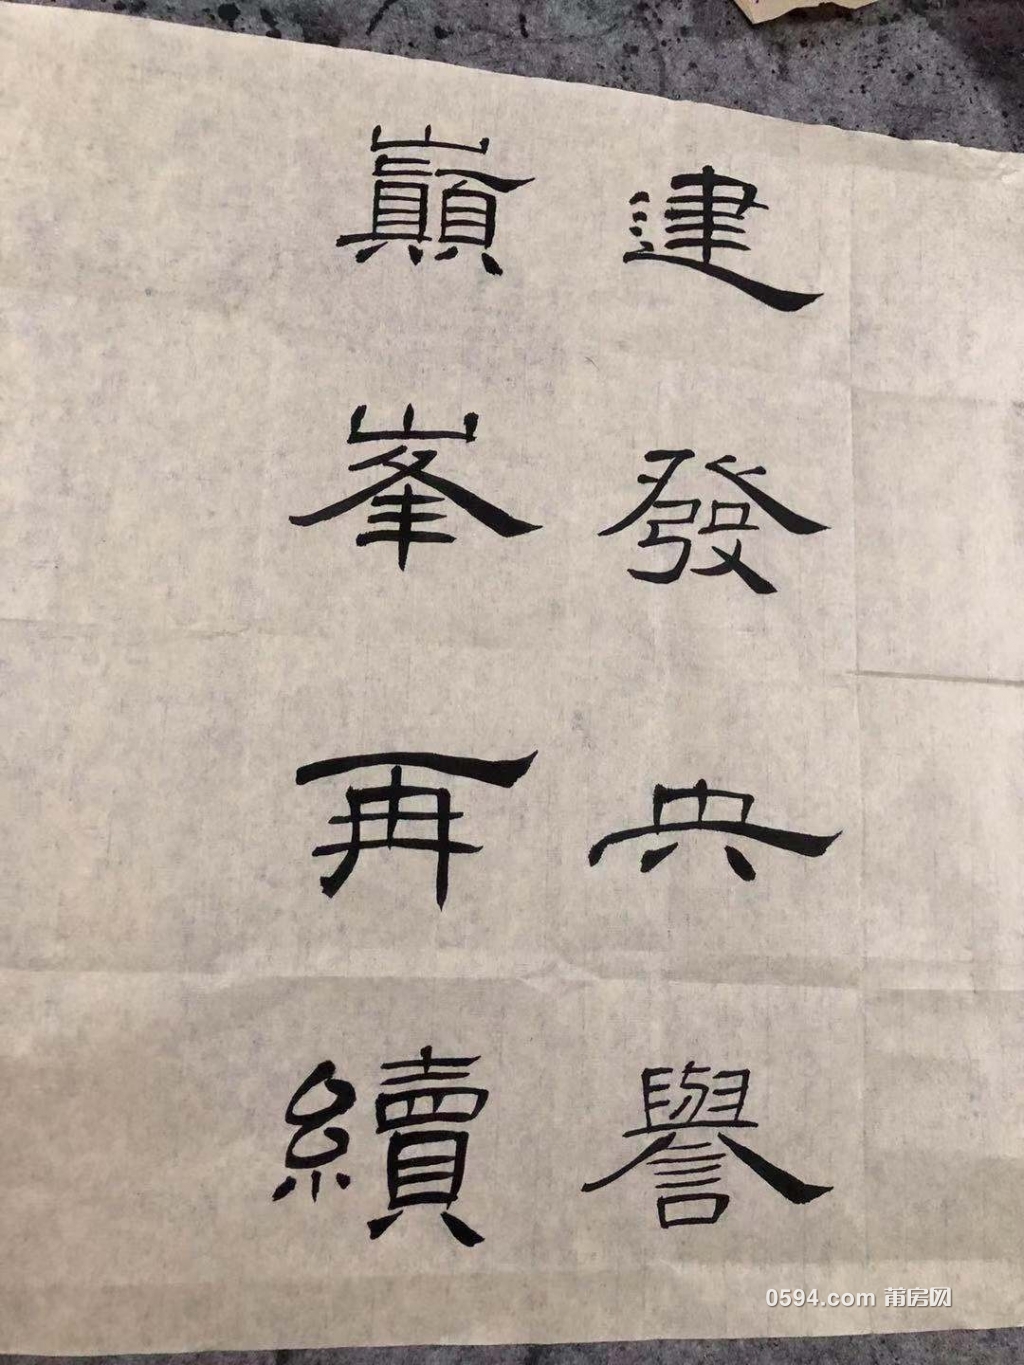 建發央譽
巔峯再續
0594.com 莆房网